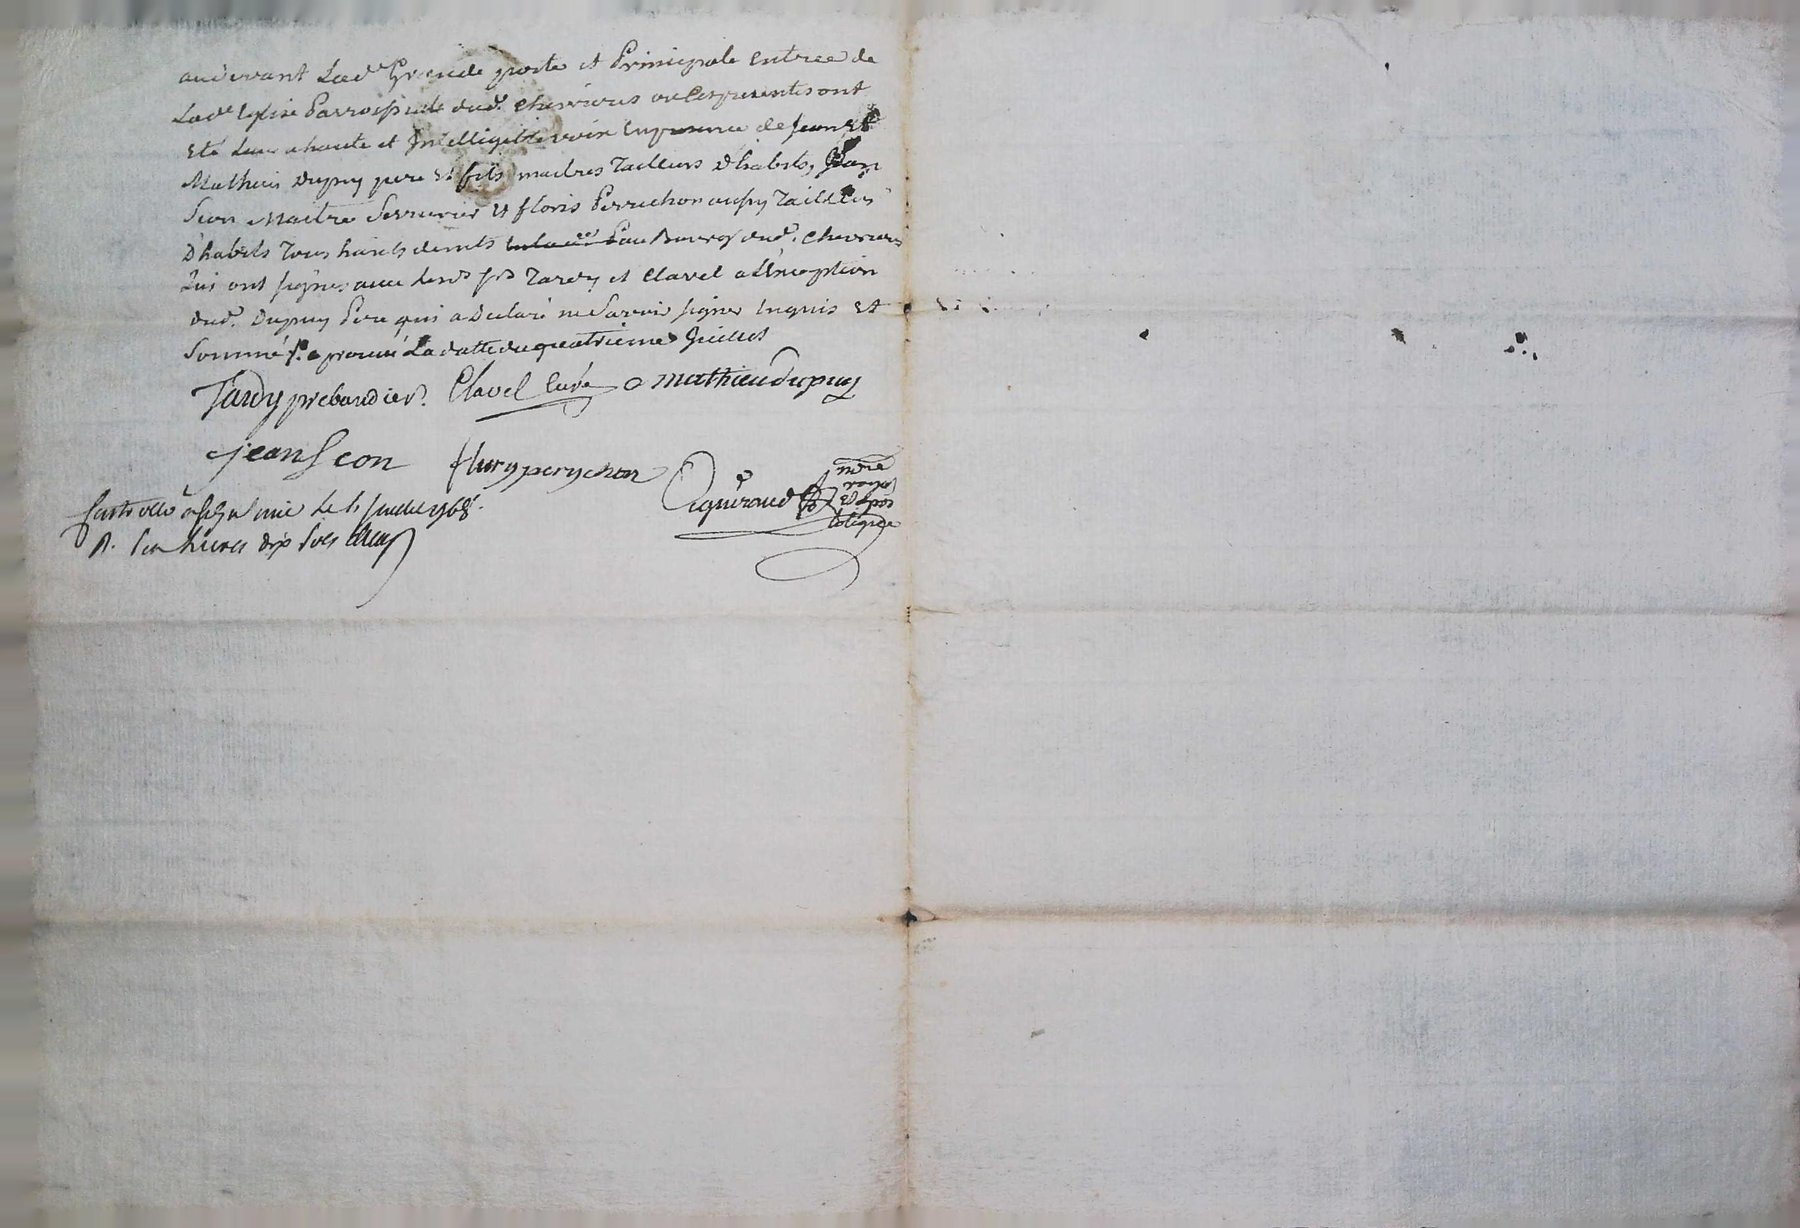 audevant Lad.e Grande porte et Principale entree de
Lad.e Eglise Parroissiale dud. Chevrieres ou Cespresentes ont
eté Lues a haute et Intelligible voix En presence de Jean et
Mathieu Dupuy pere et fils maitres Tailleurs D'habits, Jean
Seon Maitre Serrurier et floris Perrichon aussy Tailleur
D'habits Tous habitants au Bourg dud. Chevrieres
Qui ont signés avec lesd.s srs Tardy et Clavel a L'exception
dud. Dupuy Pere qui a Declaré ne Savoir signer Enquis et
Sommé aprouvé La datte du quatrieme Juillet
Tardy prebandier. Clavel Curé mathieu dupuy
jean Seon flury perychon
Guiraud nore royal et apos tolique
Controllé a le 6 juillet 1768.
R. livres dix sols